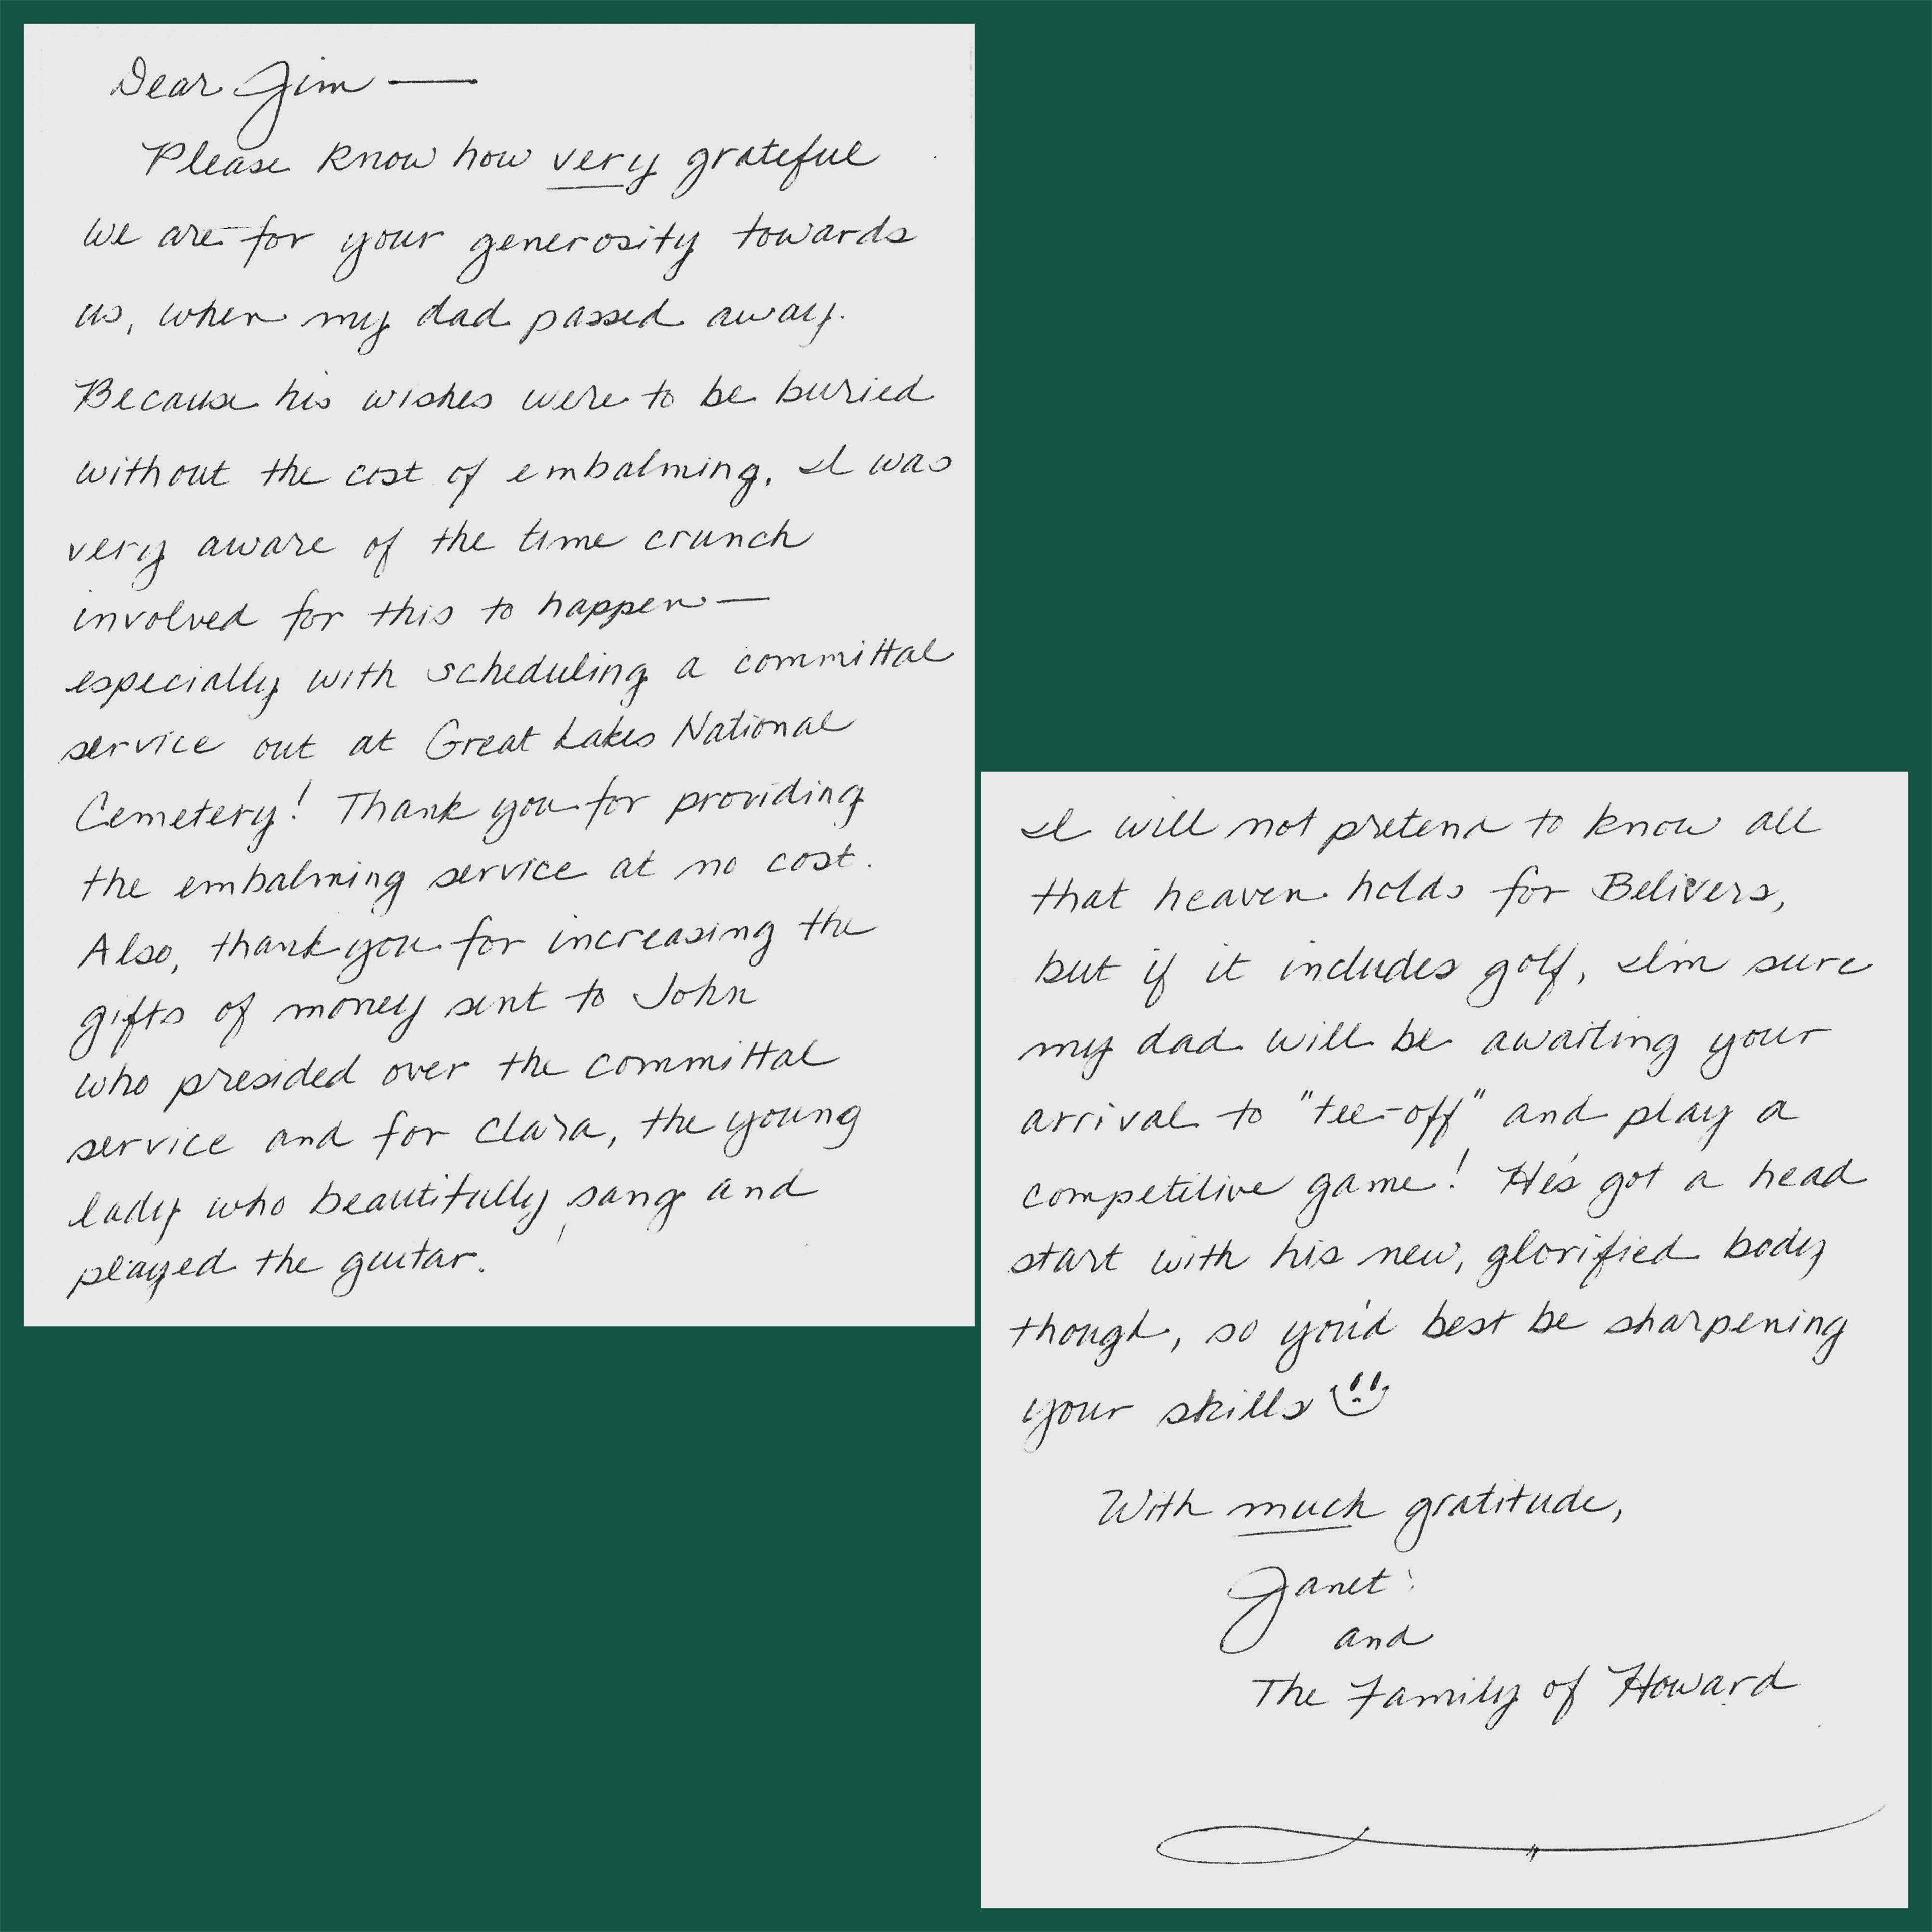 Dear Jim —
Please know how very grateful
we are for your generosity towards
us, when my dad passed away.
Because his wishes were to be buried
without the cost of embalming, I was
very aware of the time crunch
involved for this to happen —
especially with scheduling a committal
service out at Great Lakes National
Cemetery! Thank you for providing
the embalming service at no cost.
Also, thank you for increasing the
gifts of money sent to John
who presided over the committal
service and for Clara, the young
lady who beautifully sang and
played the guitar.
I will not pretend to know all
that heaven holds for Belivers,
but if it includes golf, I'm sure
my dad will be awaiting your
arrival to "tee-off" and play a
competitive game! He's got a head
start with his new, glorified body
though, so you'd best be sharpening
your skills
With much gratitude,
Janet
and
The Family of Howard